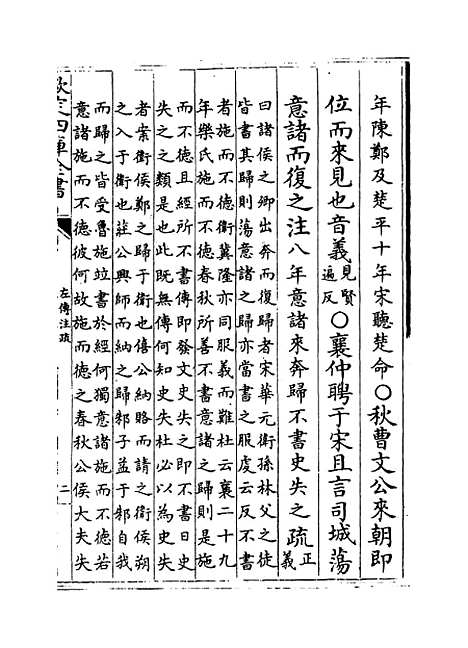 年陳鄭及楚平十年宋聽楚命○秋曹文公來朝即
位而來見也音義見賢遍反○襄仲聘于宋且言司城蕩
意諸而復之注八年意諸來奔歸不書史失之疏正義
曰諸侯之卿出奔而復歸者宋華元衛孫林父之徒
皆書其歸則蕩意諸之歸亦當書之服虔云反不書
者施而不德衛冀隆亦同服義而難杜云襄二十九
年樂氏施而不德春秋所善不書意諸之歸則是施
而不德且經所不書傳即發文史失之即不書日史
失之之類是也此既無傳何知史失杜必以為史失
者案衛侯鄭之歸于衛也僖公納賂而請之衛侯朔
之入于衛也莊公興師而納之歸邾子益于邾自我
而歸之皆受魯施竝書於經何獨意諸施而不德若
意諸施而不德彼何故施而德之春秋公侯大夫失
欽定四庫全書
左傳注疏
二